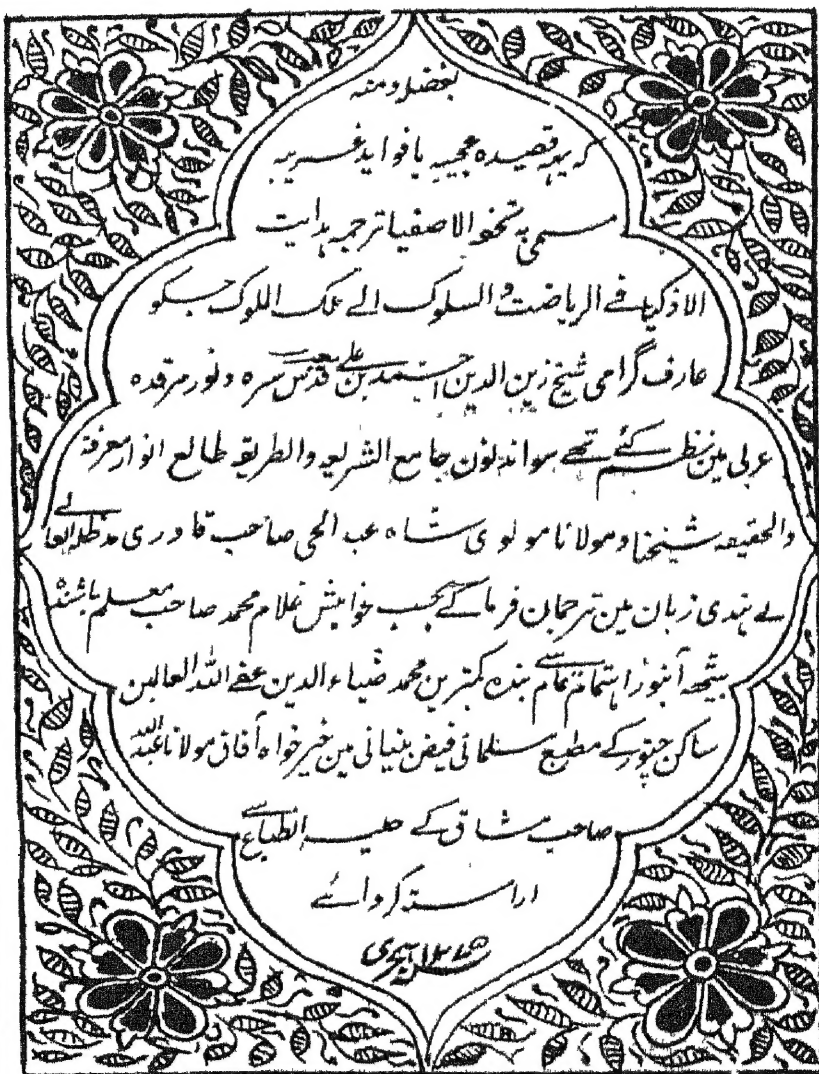 بفضل و منہ
کہ یہہ قصیدہ عجیبہ با فواید غریبہ
مسمی بہ تحفۃ الاصفیا ترجمہ ہدایت
الاذکیا فے الریاضت و السلوک الے ملک الملوک جسکو
عارف گرامی شیخ زین الدین احمد بن علی معبری قدس سرہ و نور مرقدہ
عربی مین نظم کئے تھے سو اندنون جامع الشریعہ والطریقہ طالع انوار معرفۃ
والحقیقہ شیخنا و مولانا مولوی شاہ عبد الحی صاحب قادری مد ظلہ العالے
نے ہندی زبان مین ترجمان فرماکے بحسب خواہش غلام محمد صاحب معلم باشندہ
اہتمام تمام سے بندہ کمترین محمد ضیاء الدین عفے اللہ
ساکن چتور کے مطبع فیض مین خیر خواہ آفاق مولانا عبد اللہ
صاحب مشتاق کے حلیہ انطباع سے
اراستہ کروائے
ہجری